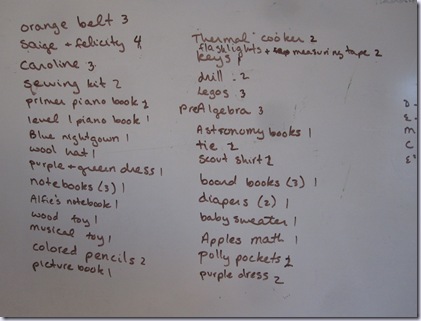 orange belt 3
saige + felicity 4
Caroline 3
sewing kit 2
primer piano book 1
level 1 piano book 1
Blue nightgown 1
wool hat 1
purple + green dress 1
notebooks (3) 1
Alfie's notebook 1
wood toy 1
musical toy 1
colored pencils 2
picture book 1
Thermal cooker 2
flashlights + measuring tape 2
keys 1
drill 2
Legos 3
preAlgebra 3
Astronomy books 1
tie 2
scout shirt 2
board books (3) 1
diapers (2) 1
baby sweater 1
Apples math 1
polly pockets 1
purple dress 2
D
E
M
C
E